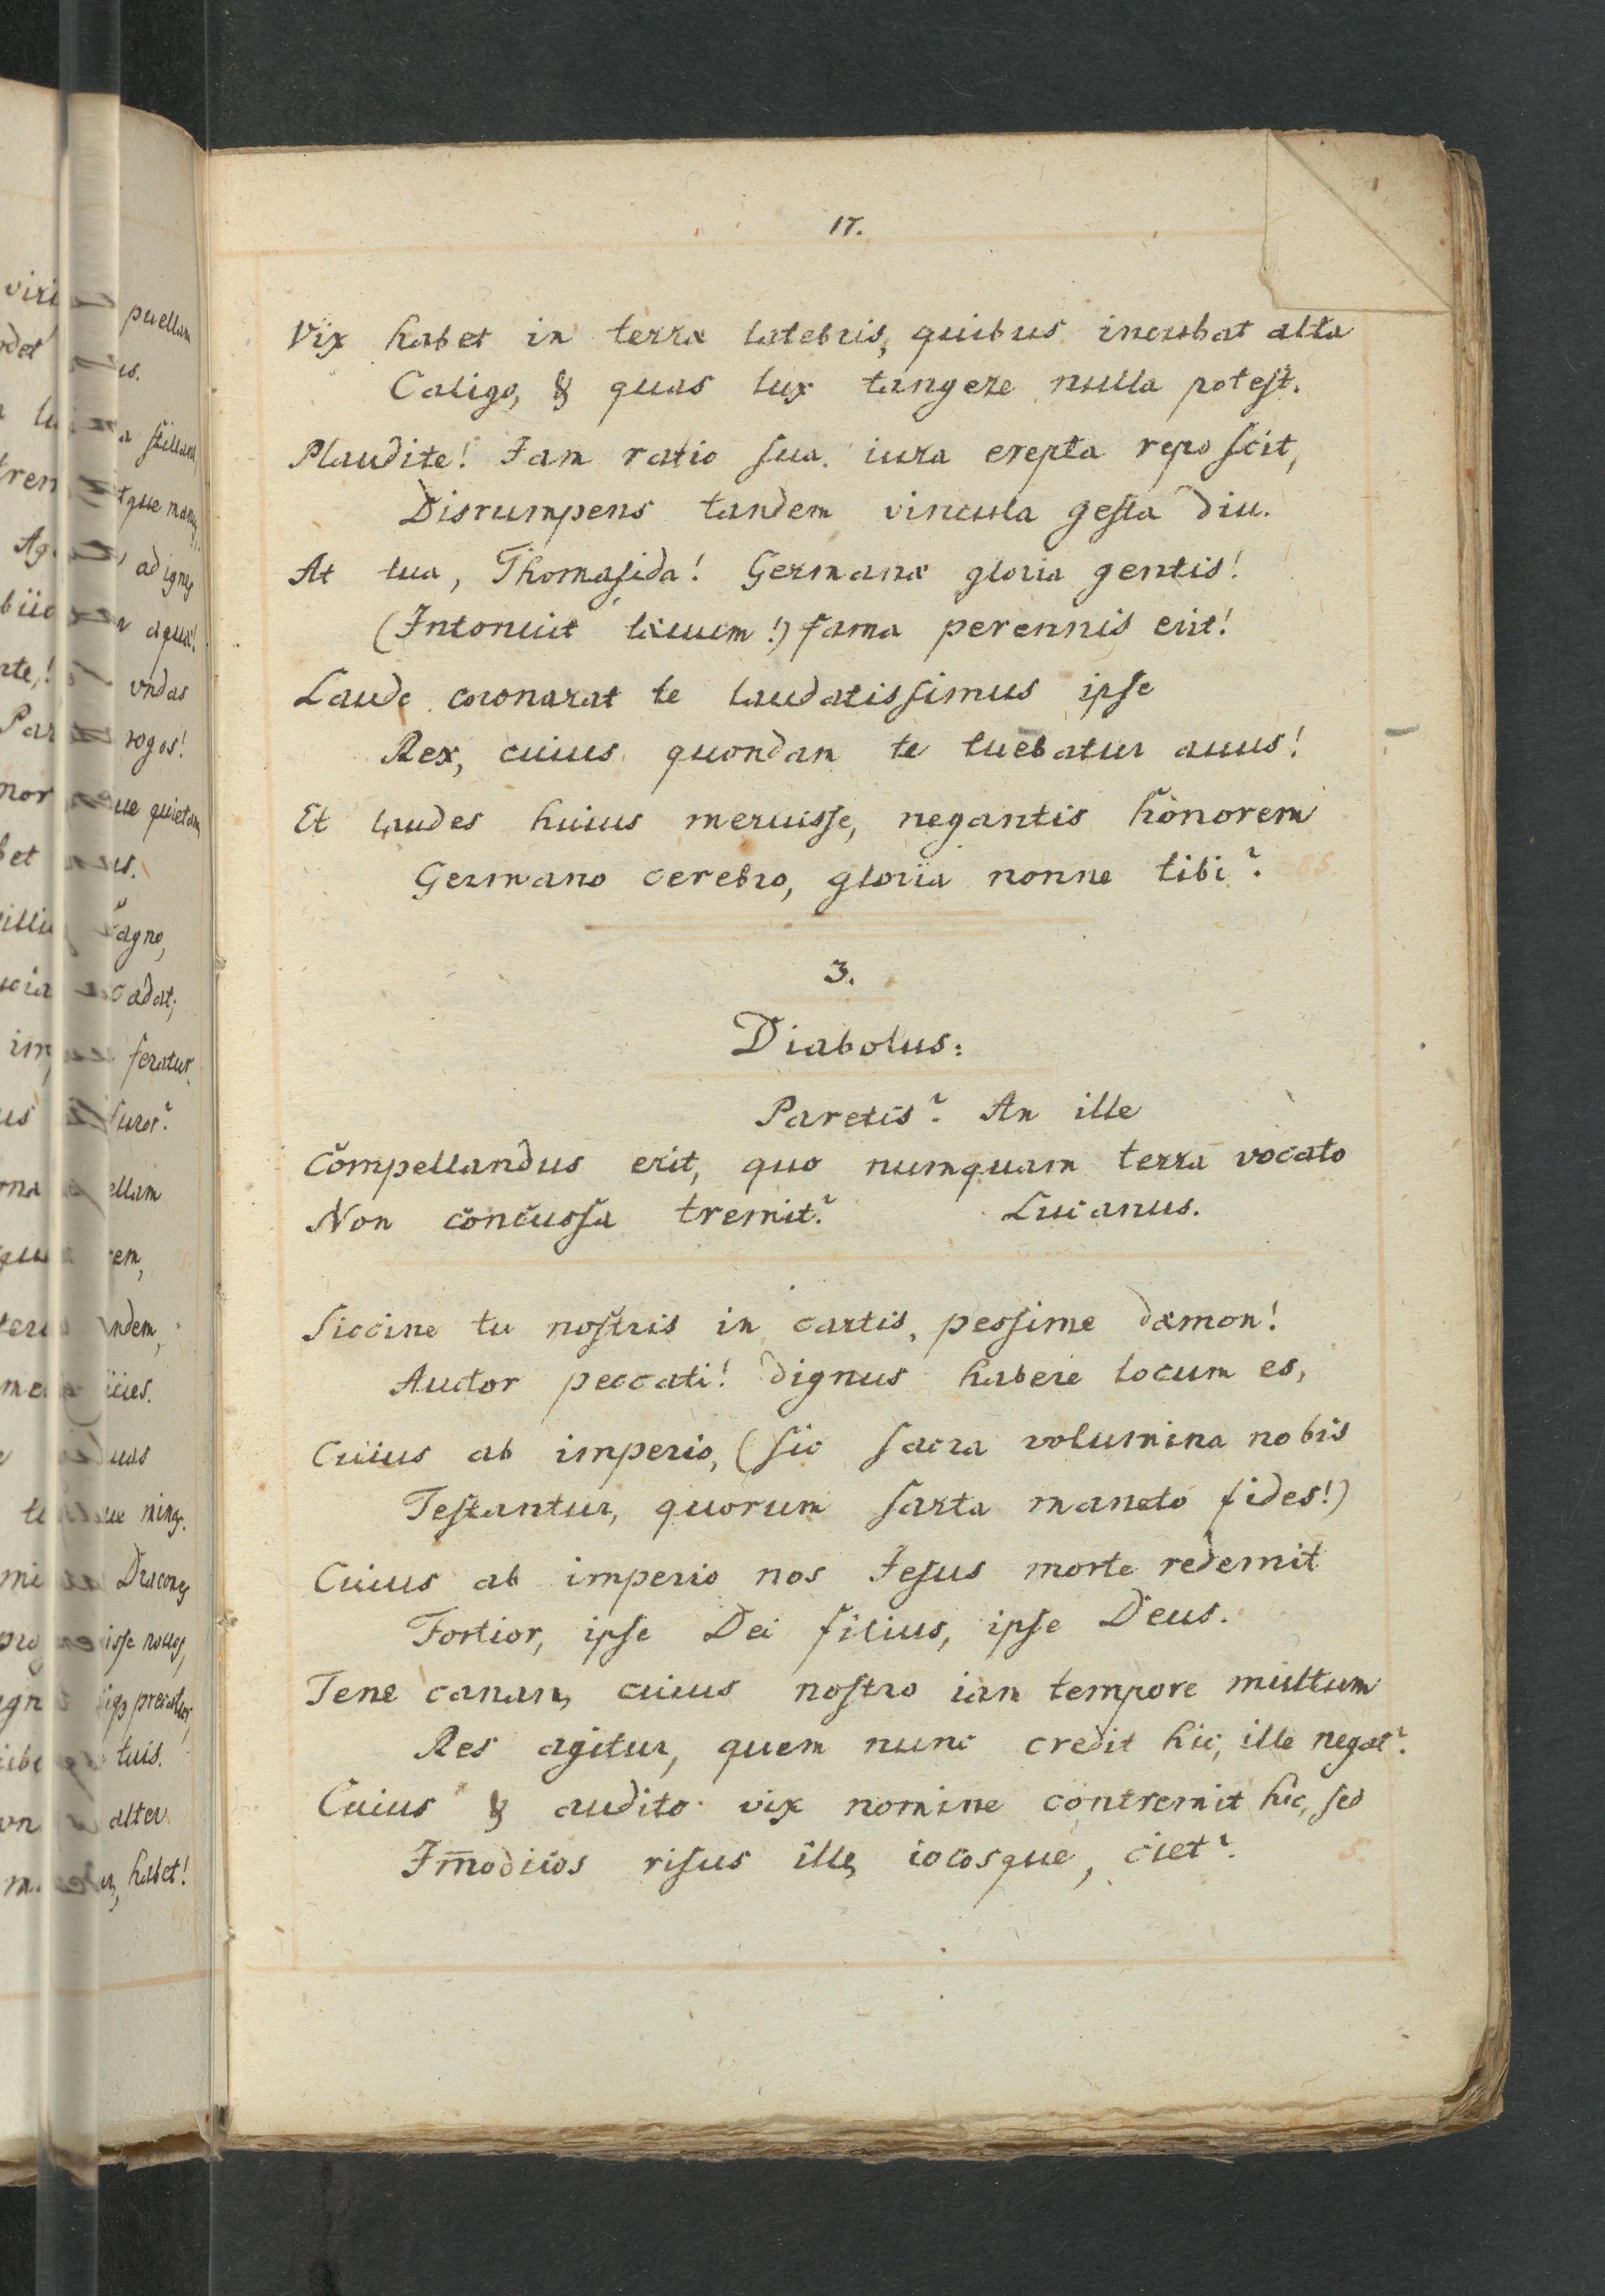 17.
Vix habet in terræ latebris, quibus incubat alta
Caligo, & quas lux tangere nulla potest.
Plaudite! Iam ratio sua iura erepta reposcit,
Disrumpens tandem vincula gesta diu.
At tua, Thomasida! Germanæ gloria gentis!
(Intonuit læuum!) fama perennis erit!
Laude coronarat te laudatissimus ipse
Rex, cuius quondam te tuebatur auus!
Et laudes huius meruisse, negantis honorem
Germano cerebro, gloria nonne tibi?
3.
Diabolus:
Paretis? An ille
Compellandus erit, quo numquam terra vocato
Non concussa tremit? Lucanus.
Siccine tu nostris in cartis, pessime dæmon!
Auctor peccati! dignus habere locum es,
Cuius ab imperio, (sic sacra volumina nobis
Testantur, quorum sarta maneto fides!)
Cuius ab imperio nos Iesus morte redemit
Fortior, ipse Dei filius, ipse Deus.
Tene canam, cuius nostro iam tempore multum
Res agitur, quem nunc credit hic, ille negat?
Cuius & audito vix nomine contremit hic, sed
Im̅odicos risus ille, iocosque, ciet?